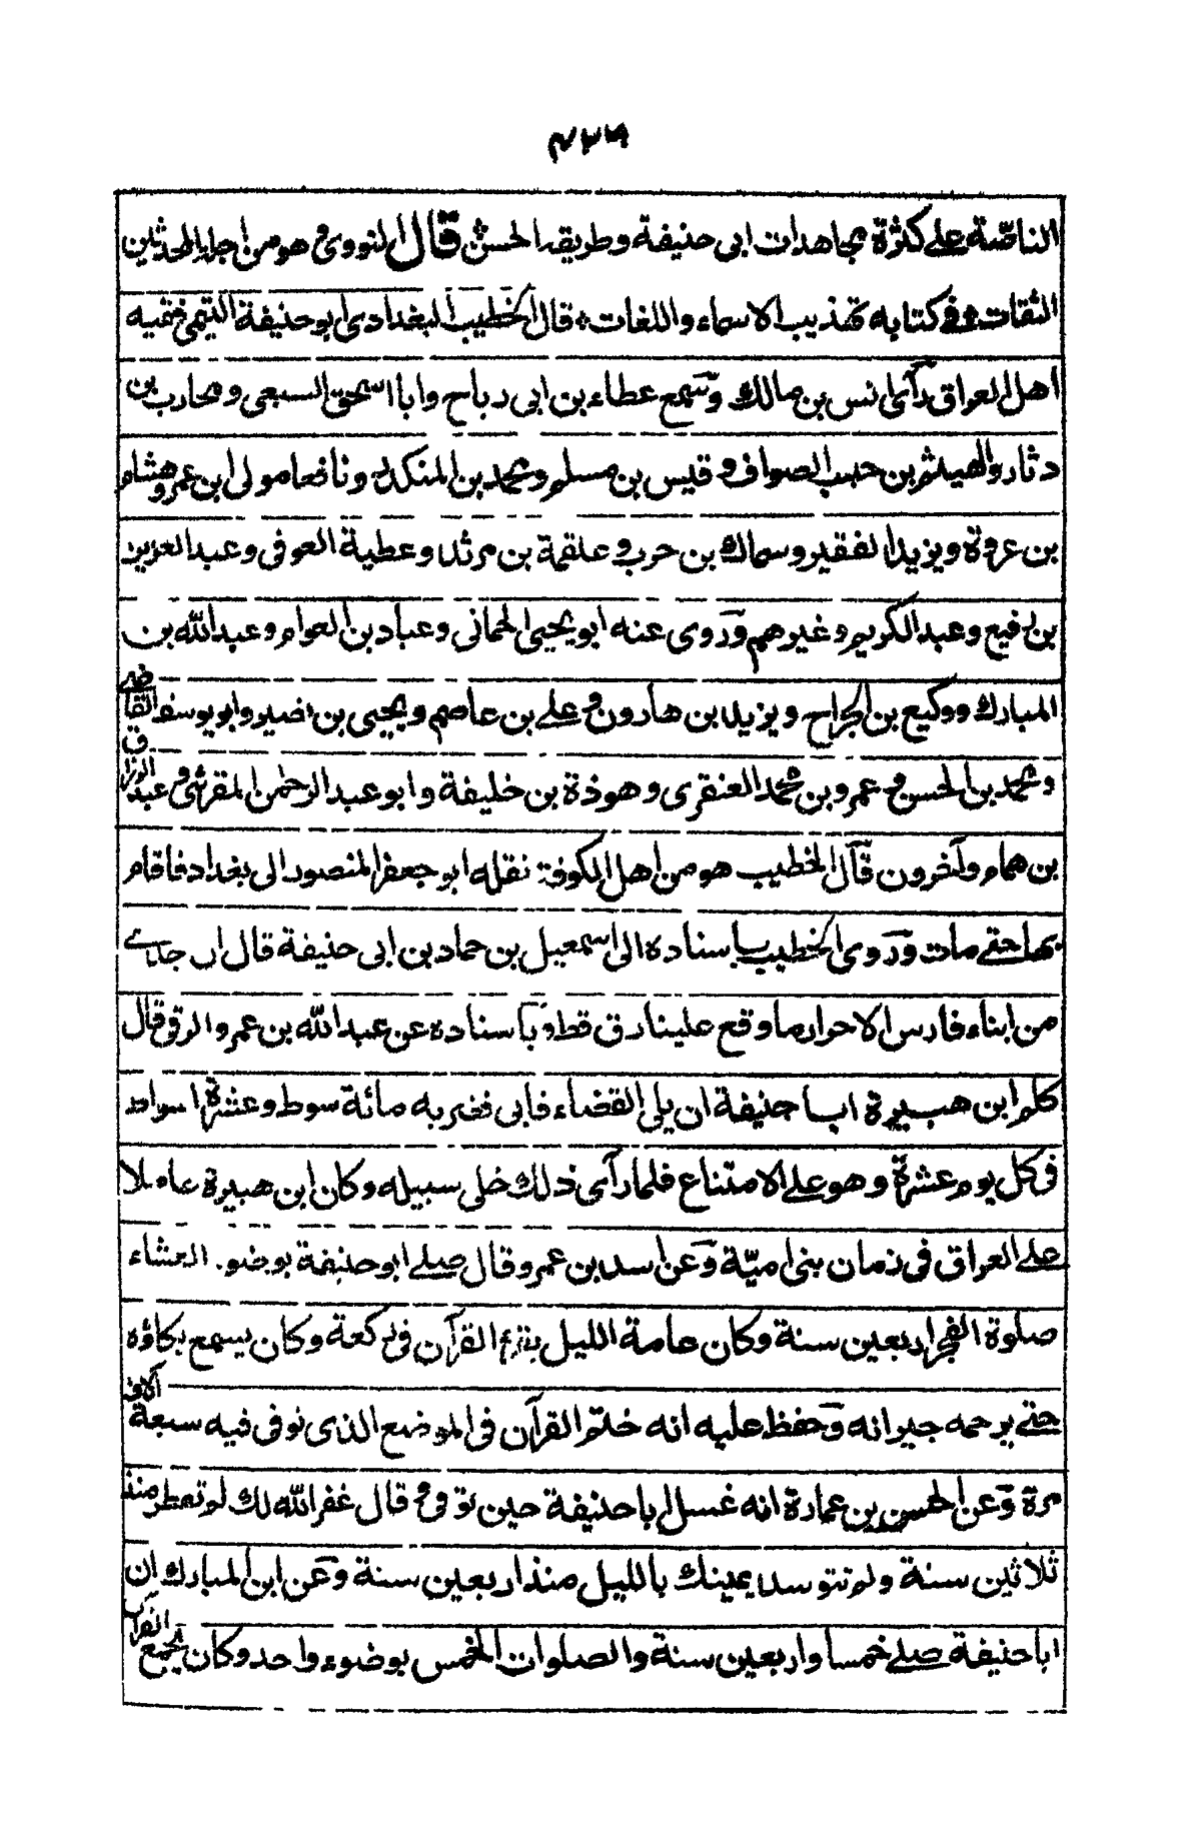 الناصّة على كثرة مجاهدات ابى حنيفة وطريقه الحسن قال النووى وهو من اجلة المحدثين
الثقات فى كتابه تهذيب الاسماء واللغات قال الخطيب البغدادى ابو حنيفة التيمى فقيه
اهل العراق رأى انس بن مالك وسمع عطاء بن ابى رباح وابا اسحق السبعى ومحارب بن
دثار والهيثم بن حبيب الصواف وقيس بن مسلم ومحمد بن المنكدر ونافعا مولى ابن عمر وهشام
بن عروة ويزيد الفقير وسماك بن حرب وعلقمة بن مرثد وعطية العوفى وعبد العزيز
بن رفيع وعبد الكريم وغيرهم وروى عنه ابو يحيى الحمانى وعباد بن العوام وعبد الله بن
المبارك ووكيع بن الجراح ويزيد بن هارون وعلى بن عاصم ويحيى بن نصير وابو يوسف القاضى
ومحمد بن الحسن وعمرو بن محمد العنقرى وهوذة بن خليفة وابو عبد الرحمن المقرئ وعبد الرزاق
بن همام وآخرون قال الخطيب هو من اهل الكوفة نقله ابو جعفر المنصور الى بغداد فاقام
بها حتى مات وروى الخطيب باسناده الى اسمعيل بن حماد بن ابى حنيفة قال ان جدى
من ابناء فارس الاحرار ما وقع علينا رق قط وباسناده عن عبد الله بن عمرو الرقى قال
كلم ابن هبيرة ابا حنيفة ان يلى القضاء فابى فضربه مائة سوط وعشرة اسواط
فى كل يوم عشرة وهو على الامتناع فلما رأى ذلك خلى سبيله وكان ابن هبيرة عاملا
على العراق فى زمان بنى اميّة وعن اسد بن عمرو قال صلى ابو حنيفة بوضوء العشاء
صلوة الفجر اربعين سنة وكان عامة الليل يقرء القرآن فى ركعة وكان يسمع بكاؤه
حتى يرحمه جيرانه وحفظ عليه انه ختم القرآن فى الموضع الذى توفى فيه سبعة آلاف
مرة وعن الحسن بن عمارة انه غسل ابا حنيفة حين توفى وقال غفر الله لك لم تفطر منذ
ثلاثين سنة ولم تتوسد يمينك بالليل منذ اربعين سنة وعن ابن المبارك ان
ابا حنيفة صلى خمسا واربعين سنة والصلوات الخمس بوضوء واحد وكان يجمع القرآن